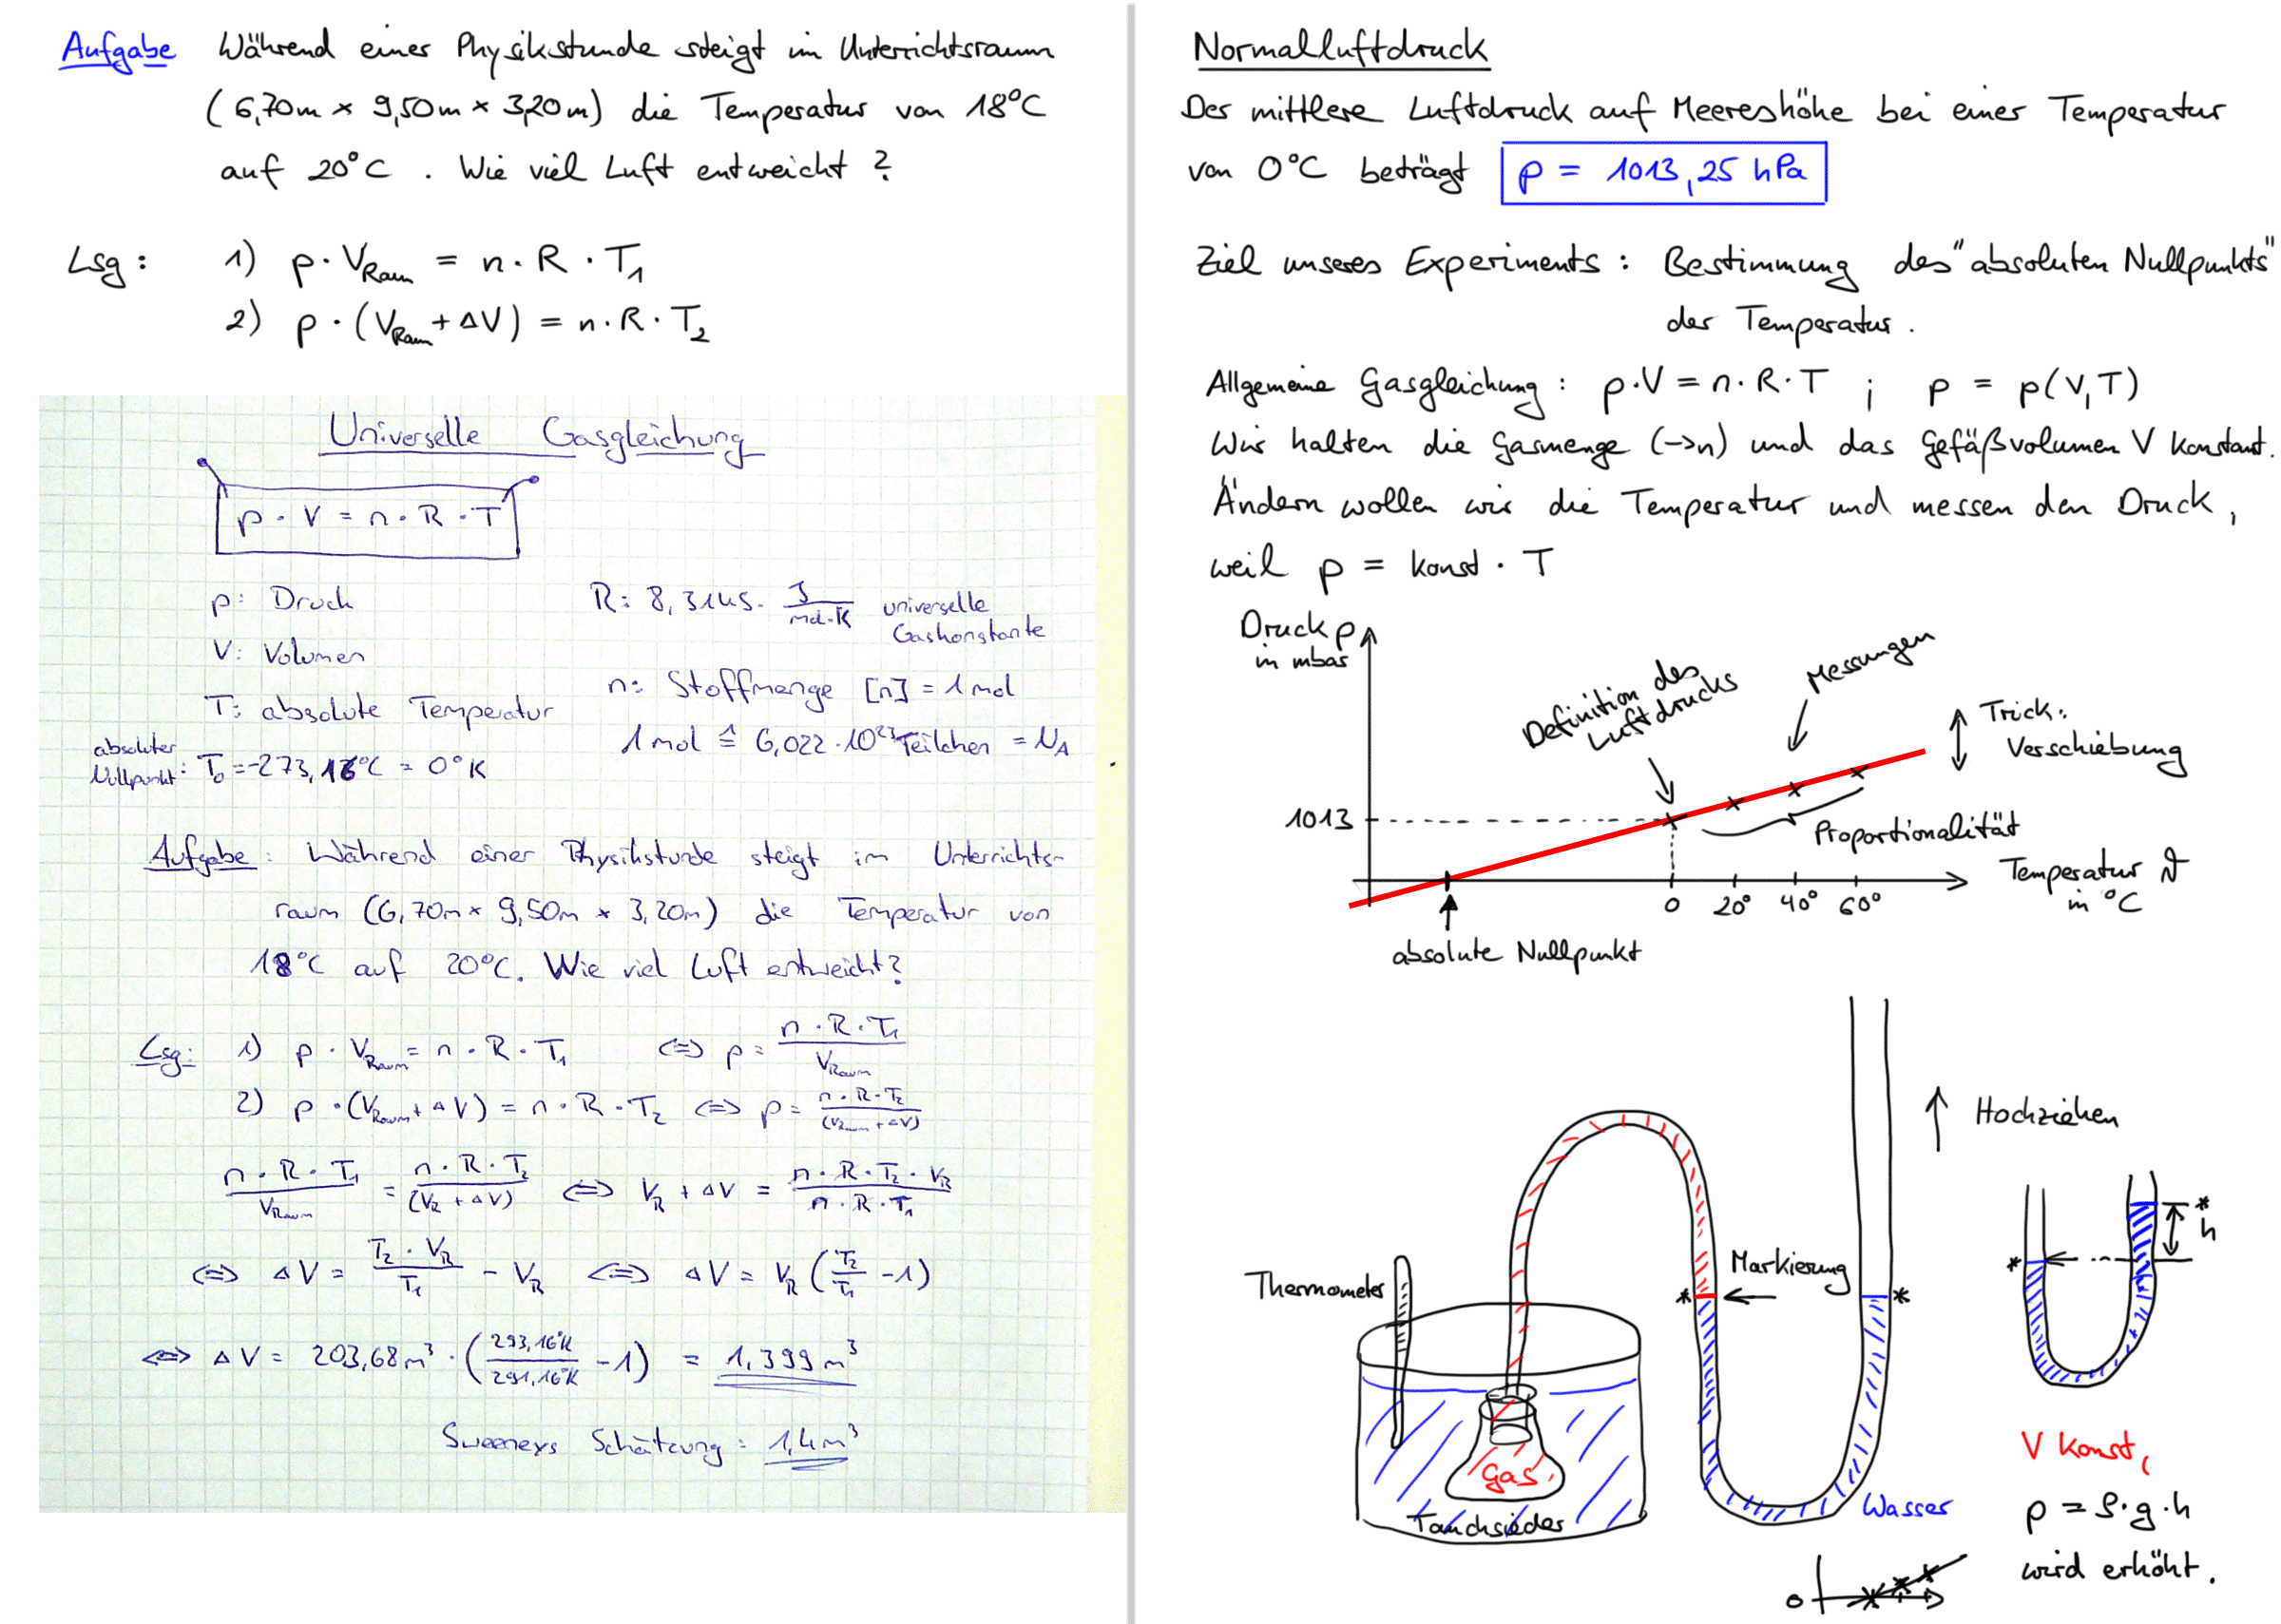 Aufgabe Während einer Physikstunde steigt im Unterrichtsraum
(6,70m × 9,50m × 3,20m) die Temperatur von 18°C
auf 20°C. Wie viel Luft entweicht?
Lsg: 1) p · V_Raum = n · R · T₁
2) p · (V_Raum + ΔV) = n · R · T₂
Universelle Gasgleichung
p · V = n · R · T
p: Druck
V: Volumen
T: absolute Temperatur
absoluter Nullpunkt: T₀ = -273,16°C = 0°K
R: 8,3145 · J/mol·K universelle Gaskonstante
n: Stoffmenge [n] = 1 mol
1 mol ≙ 6,022 · 10²³ Teilchen = N_A
Aufgabe: Während einer Physikstunde steigt im Unterrichts-
raum (6,70m × 9,50m × 3,20m) die Temperatur von
18°C auf 20°C. Wie viel Luft entweicht?
Lsg: 1) p · V_Raum = n · R · T₁ ⇔ p = n · R · T₁ / V_Raum
2) p · (V_Raum + ΔV) = n · R · T₂ ⇔ p = n · R · T₂ / (V_Raum + ΔV)
n · R · T₁ / V_Raum = n · R · T₂ / (V_R + ΔV) ⇔ V_R + ΔV = n · R · T₂ · V_R / n · R · T₁
⇔ ΔV = T₂ · V_R / T₁ - V_R ⇔ ΔV = V_R (T₂/T₁ - 1)
⇔ ΔV = 203,68m³ · (293,16°K / 291,16°K - 1) = 1,399m³
Sweeneys Schätzung: 1,4m³
Normalluftdruck
Der mittlere Luftdruck auf Meereshöhe bei einer Temperatur
von 0°C beträgt p = 1013,25 hPa
Ziel unseres Experiments: Bestimmung des "absoluten Nullpunkts"
der Temperatur.
Allgemeine Gasgleichung: p·V = n·R·T ; p = p(V,T)
Wir halten die Gasmenge (→n) und das Gefäßvolumen V konstant.
Ändern wollen wir die Temperatur und messen den Druck,
weil p = konst · T
Druck p
in mbar
Definition des
Luftdrucks
Messungen
Trick:
Verschiebung
1013
Proportionalität
Temperatur ϑ
in °C
0 20° 40° 60°
absolute Nullpunkt
Hochziehen
Thermometer
Markierung
*
*
*
*
h
Gas
Tauchsieder
Wasser
V konst,
p = ρ·g·h
wird erhöht.
0